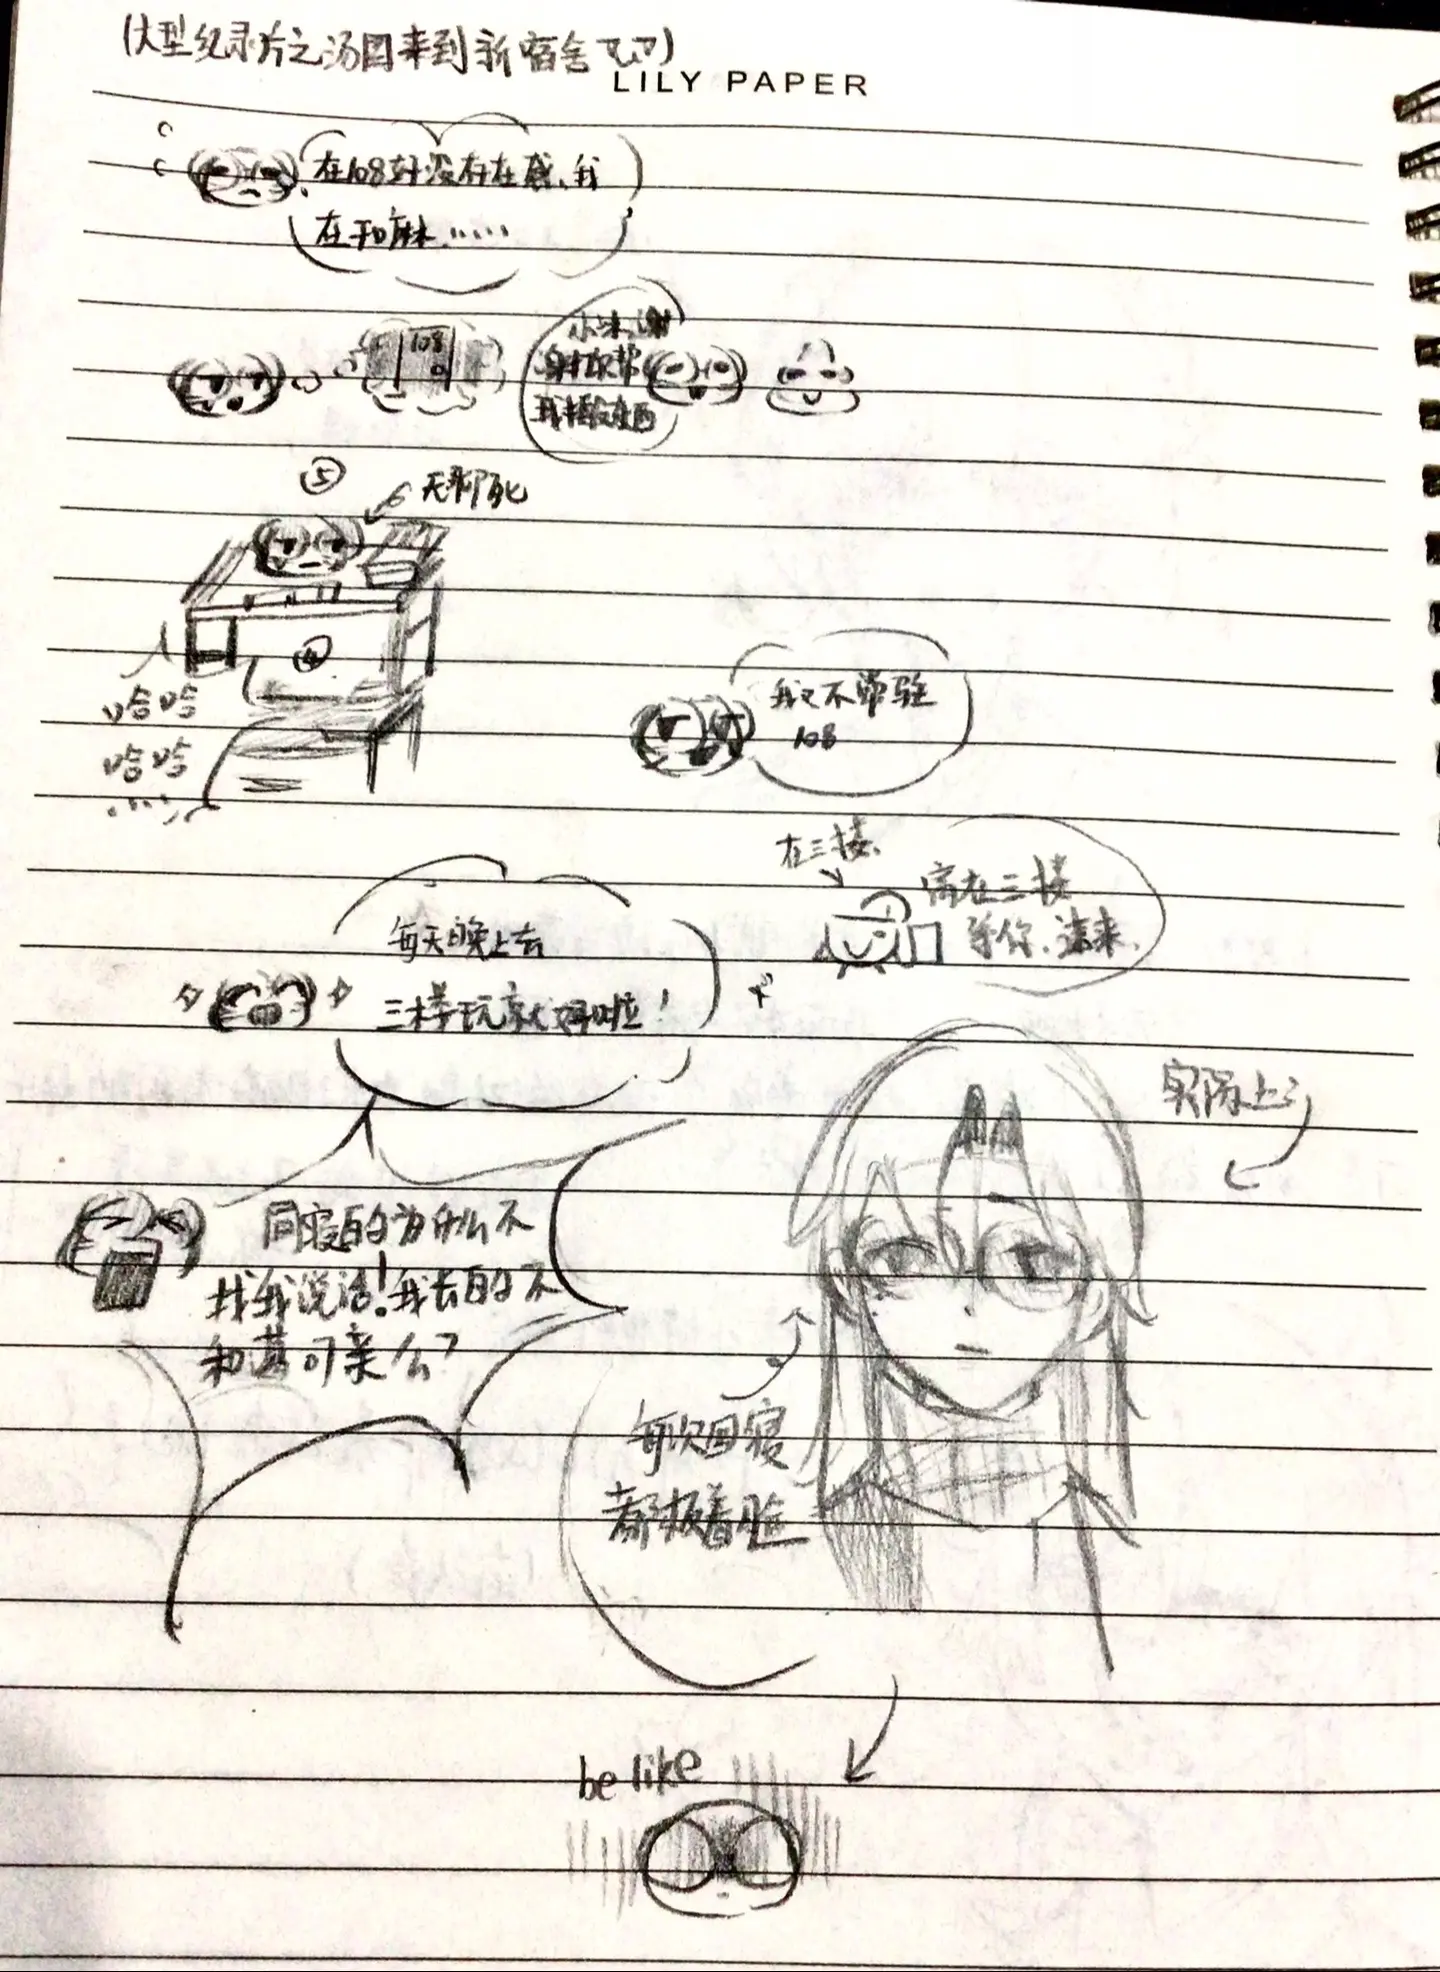 (大型纪录片之汤圆来到新宿舍
LILY PAPER
在108好没存在感,我
在和麻......
108
小沫,谢
谢你帮
我搬东西
⑤
无聊死
④
哈哈
哈哈
......
我又不常驻
108
在三楼
窝在三楼
等你,速来.
每天晚上去
三楼玩就好啦!
实际上:
同寝的为什么不
找我说话!我长的不
和蔼可亲么?
每次回寝
都板着脸
be like